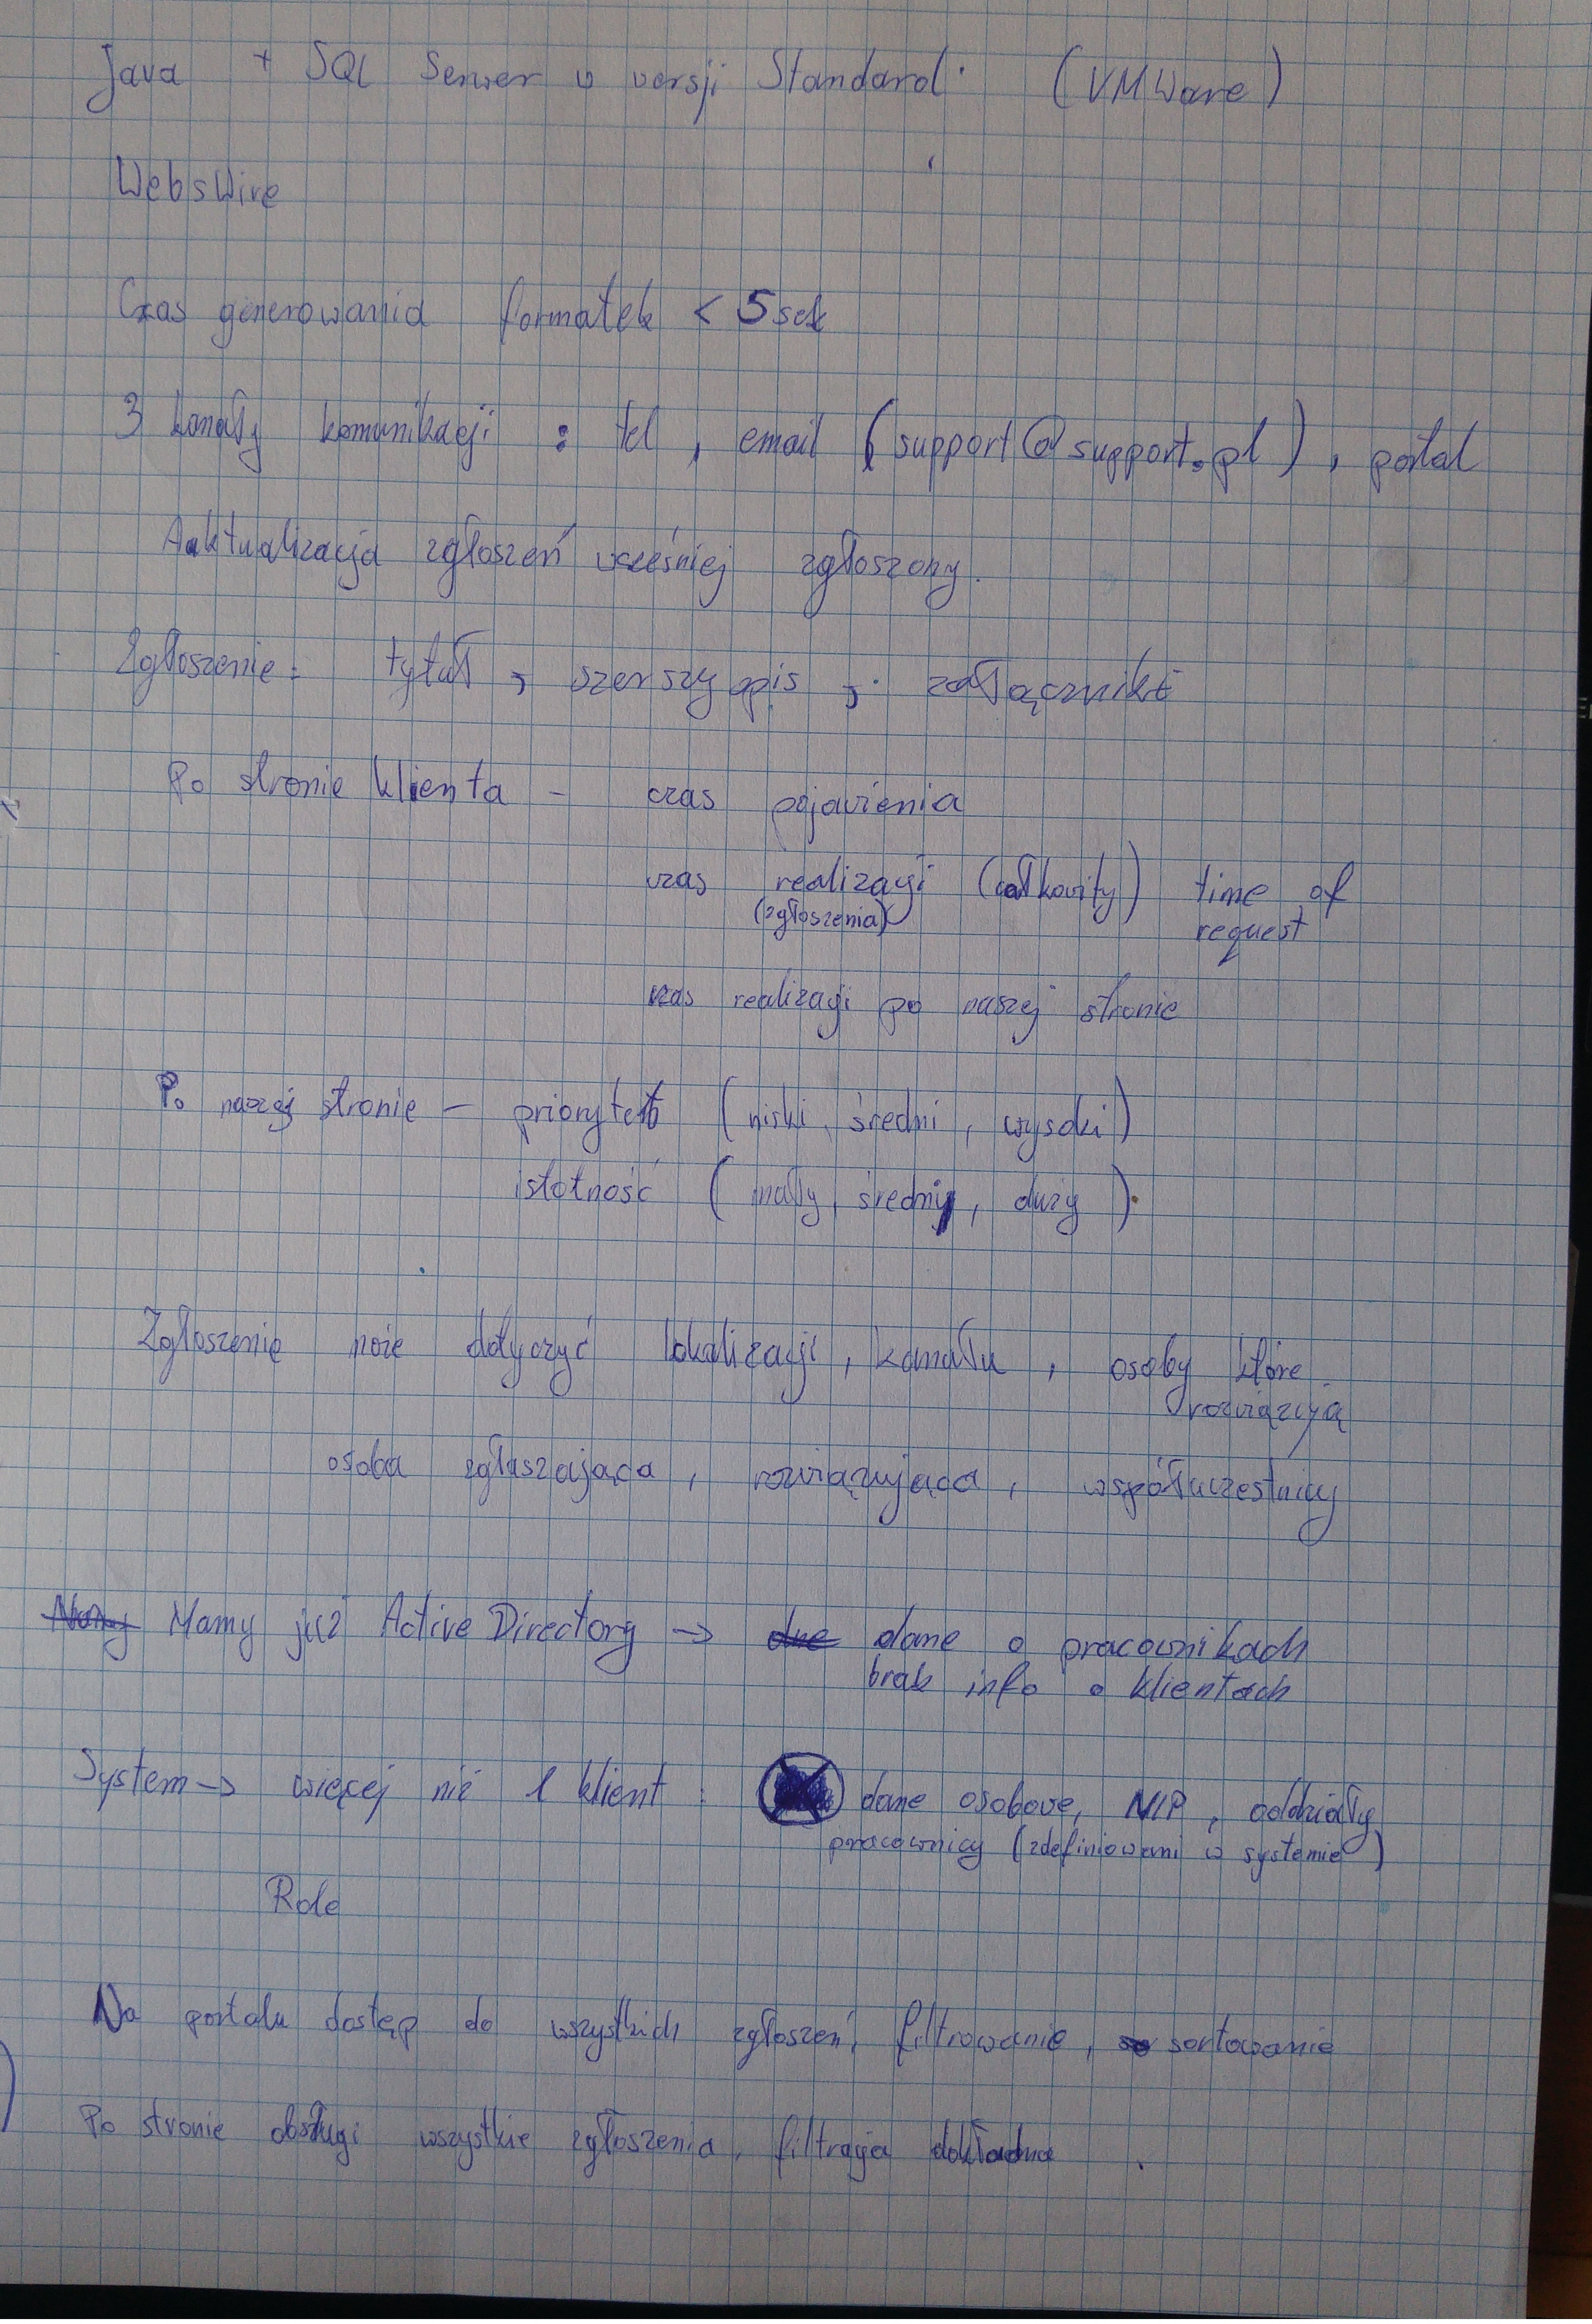 Java + SQL Serwer w wersji Standard (VMWare)
WebsWire
Czas generowania formatek < 5 sek
3 kanały komunikacji : tel , email (support@support.pl) , portal
Aaktualizacja zgłoszeń wcześniej zgłoszony.
Zgłoszenie : tytuł , szerszy opis , załączniki
Po stronie klienta - czas pojawienia
czas realizacji (całkowity) time of
(zgłoszenia) request
czas realizacji po naszej stronie
Po naszej stronie - priorytet (niski, średni, wysoki)
istotność (mały, średni, duży)
Zgłoszenie może dotyczyć lokalizacji, kanału , osoby które
rozwiązują
osoba zgłaszająca , rozwiązująca , współuczestnicy
Mamy już Active Directory -> dane o pracownikach
brak info o klientach
System -> więcej niż 1 klient : dane osobowe, NIP , oddziały
pracownicy (zdefiniowani w systemie)
Role
Na portalu dostęp do wszystkich zgłoszeń, filtrowanie, sortowanie
Po stronie obsługi wszystkie zgłoszenia, filtracja dokładna